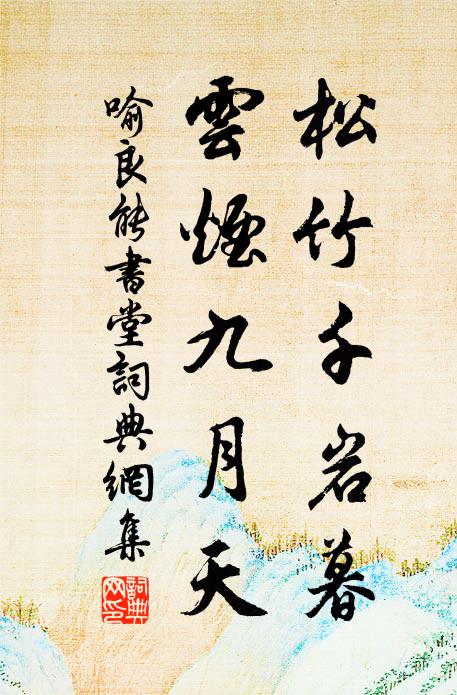 松竹千岩暮
雲煙九月天
喻良能書堂詞典網集
詞典网印